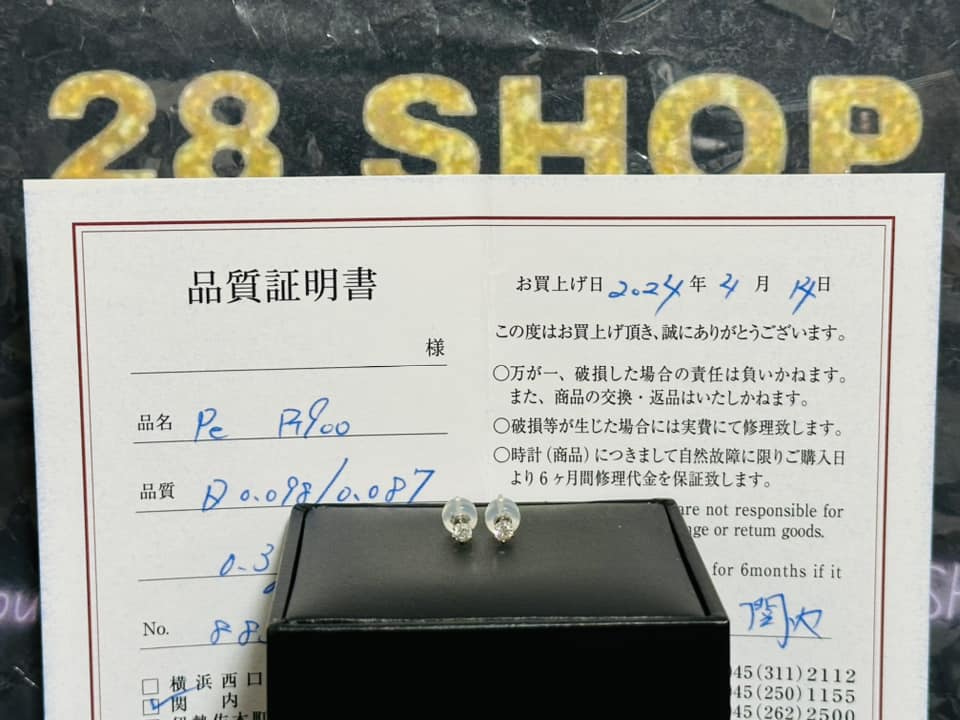 28 SHOP
品質証明書
様
品名 Pe Pt900
品質 D 0.098/0.087
0.3
No. 88
□ 横浜西口
関内
お買上げ日 2024年4月14日
この度はお買上げ頂き、誠にありがとうございます。
○万が一、破損した場合の責任は負いかねます。
また、商品の交換・返品はいたしかねます。
○破損等が生じた場合には実費にて修理致します。
○時計(商品)につきまして自然故障に限りご購入日
より6ヶ月間修理代金を保証致します。
are not responsible for
nge or return goods.
for 6months if it
関内
045(311)2112
045(250)1155
045(262)2500